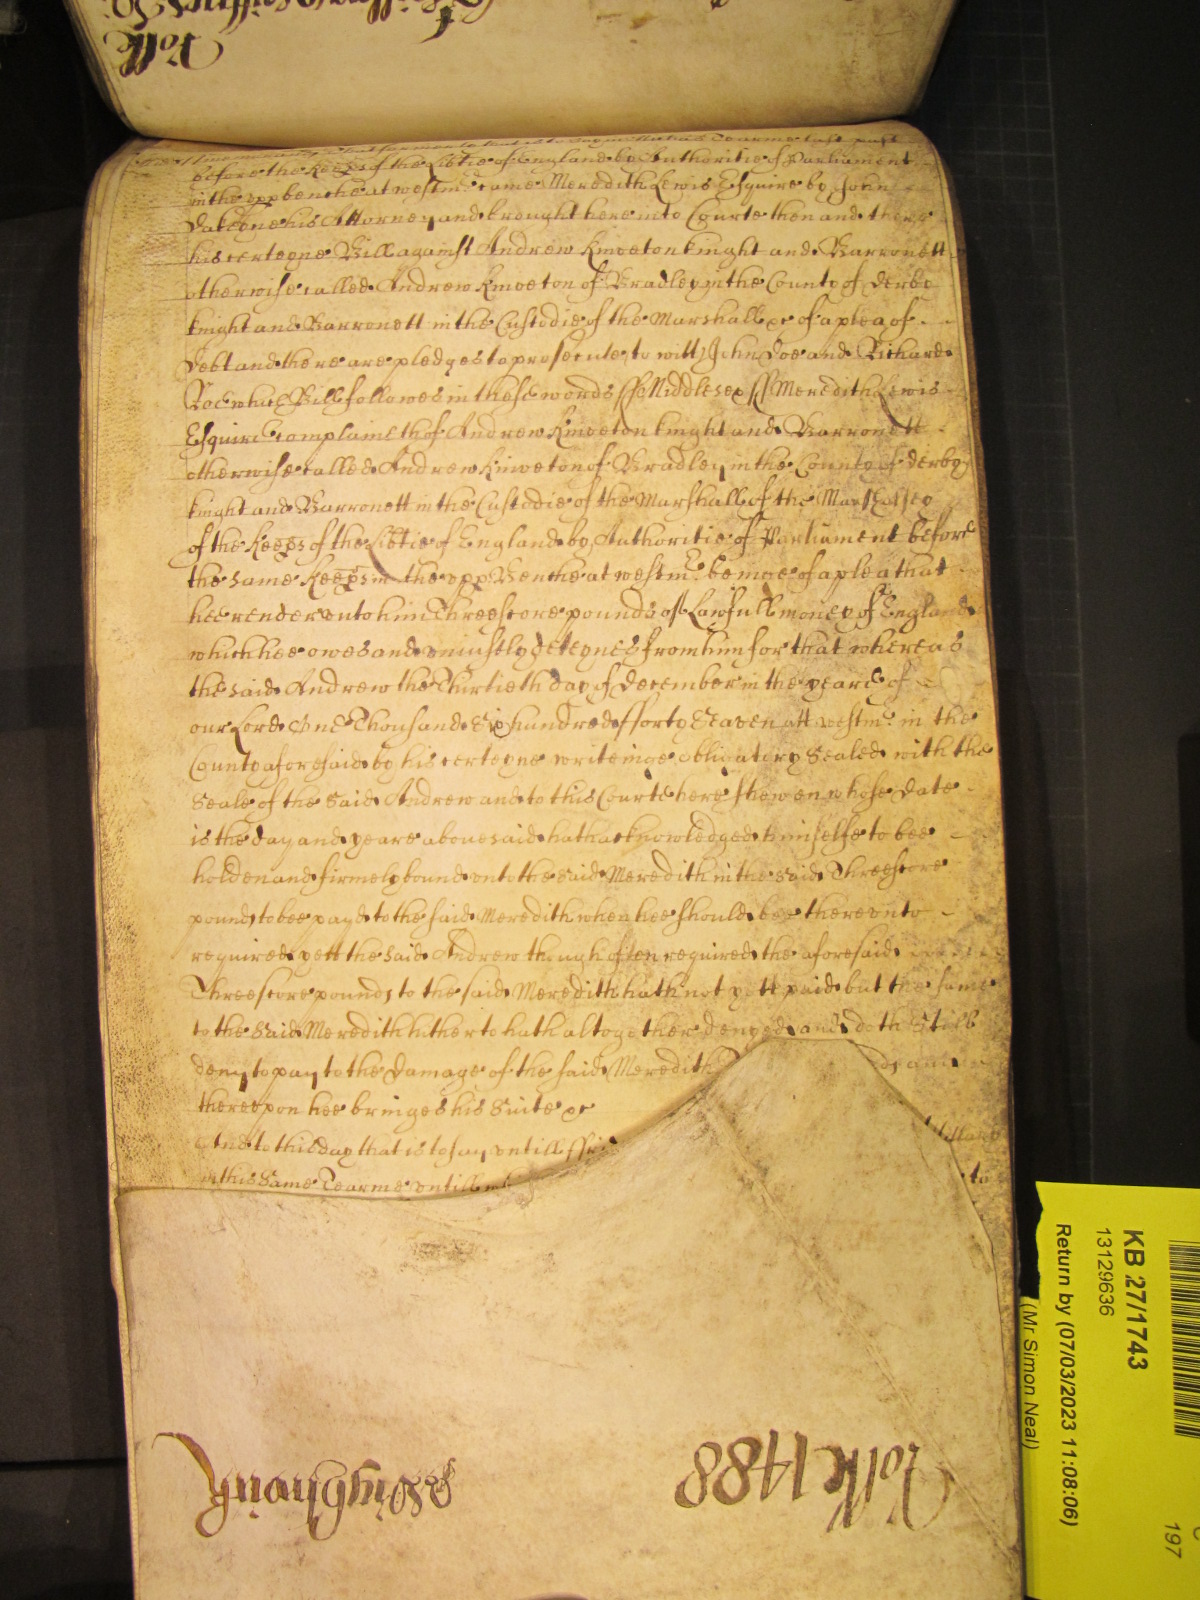 Rolle
before the Keeps of the Libtie of England by Authoritie of Parliament
in the upp benche at westmr came Meredith Lewis Esquire by John
his Attorney and brought here into Courte then and there
his certeyne Bill against Andrew Kniveton knight and Barronett
otherwise called Andrew Kniveton of Bradley in the County of Derby
knight and Barronett in the Custodie of the Marshall &c of a plea of
Debt and there are pledges to prosecute to witt John Doe and Richard
Roe which Bill followes in these words ss Middlesex ss Meredith Lewis
Esquire Complaineth of Andrew Kniveton knight and Barronett
otherwise called Andrew Kniveton of Bradley in the County of Derby
knight and Barronett in the Custodie of the Marshall of the Marshalsey
of the Keeps of the Libtie of England by Authoritie of Parliament before
the same Keeps in the upp Benche at westmr beinge of a plea that
hee render unto him Threescore pounds of Lawfull money of England
which hee owes and uniustly deteynes from him for that whereas
the said Andrew the Thirtieth day of December in the yeare of
our Lord One Thousand Six hundred fforty Seaven att westmr in the
County aforesaid by his certeyne writeinge obligatory Sealed with the
Seale of the said Andrew and to this Courte here shewen whose Date
is the day and yeare abovesaid hath acknowledged himselfe to bee
holden and firmely bound unto the said Meredith in the said Threescore
pounds to bee payd to the said Meredith when hee should bee thereunto
required yett the said Andrew though often required the aforesaid
Threescore pounds to the said Meredith hath not yett paid but the same
to the said Meredith hitherto hath altogether denyed and doth Still
deny to pay to the Damage of the said Meredith and
thereupon hee bringes his Suite &c
And to this day that is to say untill
in this same Tearme untill to
Rolle 1488
Wightwick
KB 27/1743
13129636
Return by (07/03/2023 11:08:06)
(Mr Simon Neal)
197